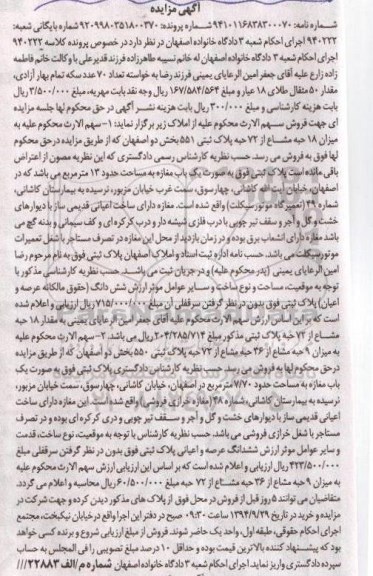 آگهی مزایده
شماره نامه: ۹۴۱۰۱۱۶۸۳۸۳۰۰۰۷۰ شماره پرونده: ۹۲۰۹۹۸۰۳۵۱۸۰۰۳۷۰ شماره بایگانی شعبه:
۹۴۰۲۲۲ اجرای احکام شعبه ۳ دادگاه خانواده اصفهان در نظر دارد در خصوص پرونده کلاسه ۹۴۰۲۲۲
اجرای احکام شعبه ۳ دادگاه خانواده اصفهان له خانم نسیبه طاهرزاده فرزند قدیرعلی با وکالت خانم فاطمه
زاده زارع علیه آقای جعفر امین الرعایای یمینی فرزند رضا به خواسته تعداد ۷۰ عدد سکه تمام بهار آزادی،
مقدار ۵۰ مثقال طلای ۱۸ عیار و مبلغ ۱۶۷/۵۸۴/۵۶۴ ریال وجه نقد بابت مهریه، مبلغ ۳/۵۰۰/۰۰۰ ریال
بابت هزینه کارشناسی و مبلغ ۳۰۰/۰۰۰ ریال بابت هزینه نشر آگهی در حق محکوم لها جلسه مزایده
ای جهت فروش سهم الارث محکوم علیه از املاک زیر برگزار نماید: ۱-سهم الارث محکوم علیه به
میزان ۱۸ حبه مشاع از ۷۲ حبه پلاک ثبتی ۵۵۱ بخش دو اصفهان که از طریق مزایده در حق محکوم
لها فوق به فروش می رسد. حسب نظریه کارشناس رسمی دادگستری که این نظریه مصون از اعتراض
باقی مانده است پلاک ثبتی فوق به صورت یک باب مغازه به مساحت حدود ۱۳ مترمربع می باشد که در
اصفهان، خیابان آیت الله کاشانی، چهارسوق، سمت غرب خیابان مزبور، نرسیده به بیمارستان کاشانی،
شماره ۴۹ (تعمیرگاه موتورسیکلت) واقع شده است. مغازه دارای ساخت اعیانی قدیمی ساز با دیوارهای
خشت و گل و آجر و سقف تیر چوبی با درب فلزی شیشه دار و درب کرکره ای و کف سیمانی و بدنه گچ می
باشد مغازه دارای انشعاب برق بوده و در زمان بازدید از محل این مغازه در تصرف مستاجر با شغل تعمیرات
موتورسیکلت می باشد. حسب نامه اداره ثبت اسناد و املاک اصفهان پلاک ثبتی فوق به نام مرحوم رضا
امین الرعایای یمینی (پدر محکوم علیه) و در جریان ثبت می باشد. حسب نظریه کارشناس مذکور با
توجه به موقعیت، مساحت و نوع ساخت و سایر عوامل موثر ارزش شش دانگ (حقوق مالکانه عرصه و
اعیان) پلاک ثبتی فوق بدون در نظر گرفتن سرقفلی آن مبلغ ۷۱۵/۰۰۰/۰۰۰ ریال ارزیابی و اعلام شده
است که بر این اساس ارزش سهم الارث محکوم علیه آقای جعفر امین الرعایای یمینی به مقدار ۱۸ حبه
مشاع از ۷۲ حبه پلاک ثبتی مذکور مبلغ ۲۰۴/۲۸۵/۷۱۴ ریال می باشد. ۲-سهم الارث محکوم علیه
به میزان ۹ حبه مشاع از ۳۶ حبه مشاع از ۷۲ حبه پلاک ثبتی ۵۵۰ بخش دو اصفهان که از طریق مزایده
در حق محکوم لها به فروش می رسد حسب نظریه کارشناس دادگستری پلاک ثبتی فوق به صورت یک
باب مغازه به مساحت حدود ۷/۷۰ مترمربع در اصفهان، خیابان کاشانی، چهارسوق، سمت خیابان مزبور،
نرسیده به بیمارستان کاشانی، شماره ۴۸ (مغازه خرازی فروشی) واقع شده است. این مغازه دارای ساخت
اعیانی قدیمی ساز با دیوارهای خشت و گل و آجر و سقف تیر چوبی و دری کرکره ای بوده و در تصرف
مستاجر با شغل خرازی فروشی می باشد. حسب نظریه کارشناس با توجه به موقعیت، نوع ساخت، قدمت
و سایر عوامل موثر ارزش ششدانگ عرصه و اعیانی پلاک ثبتی فوق بدون در نظر گرفتن سرقفلی مبلغ
۴۲۳/۵۰۰/۰۰۰ ریال ارزیابی و اعلام شده است که بر اساس این ارزیابی ارزش سهم الارث محکوم علیه
به میزان ۹ حبه مشاع از ۳۶ حبه مشاع از ۷۲ حبه مبلغ ۶۰/۵۰۰/۰۰۰ ریال محاسبه و اعلام می گردد.
متقاضیان می توانند ۵ روز قبل از فروش در محل فوق از پلاک های مذکور دیدن کرده و جهت شرکت در
مزایده و خرید در تاریخ ۱۳۹۴/۹/۲۹ ساعت ۰۹:۳۰ صبح در دفتر این اجرا واقع در خیابان نیکبخت، مجتمع
اجرای احکام حقوقی، طبقه اول، واحد یک حاضر شوند. فروش از مبلغ ارزیابی شروع و برنده کسی خواهد
بود که پیشنهاد کننده بالاترین قیمت بوده و حداقل ۱۰ درصد مبلغ تصویبی را فی المجلس به حساب
سپرده دادگستری واریز نماید. اجرای احکام شعبه ۳ دادگاه خانواده اصفهان شماره م/الف ۲۲۸۸۳///